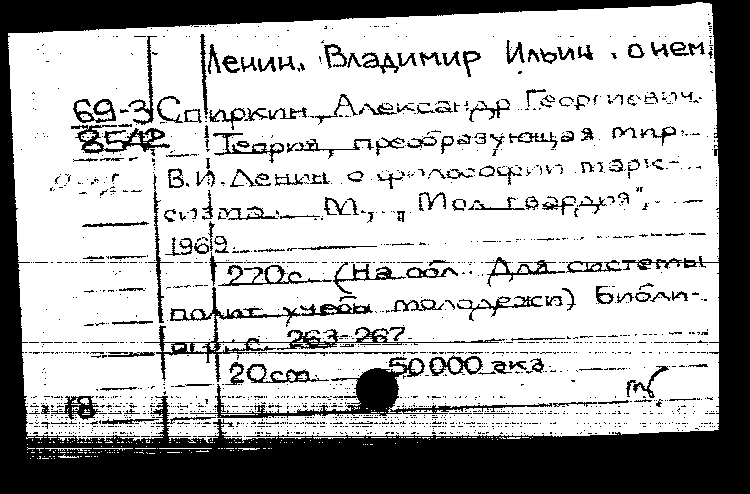 Ленин, Владимир Ильич. о нем.
69-3 Спиркин, Александр Георгиевич.
8542 Теория, преобразующая мир.
В.И. Ленин о философии марк-
сизма. М., „Мол. гвардия",
1969.
270с. (На обл.: Для системы
полит. учебы молодежи) Библи-
огр.: с. 263-267
20см. 50000 экз.
18